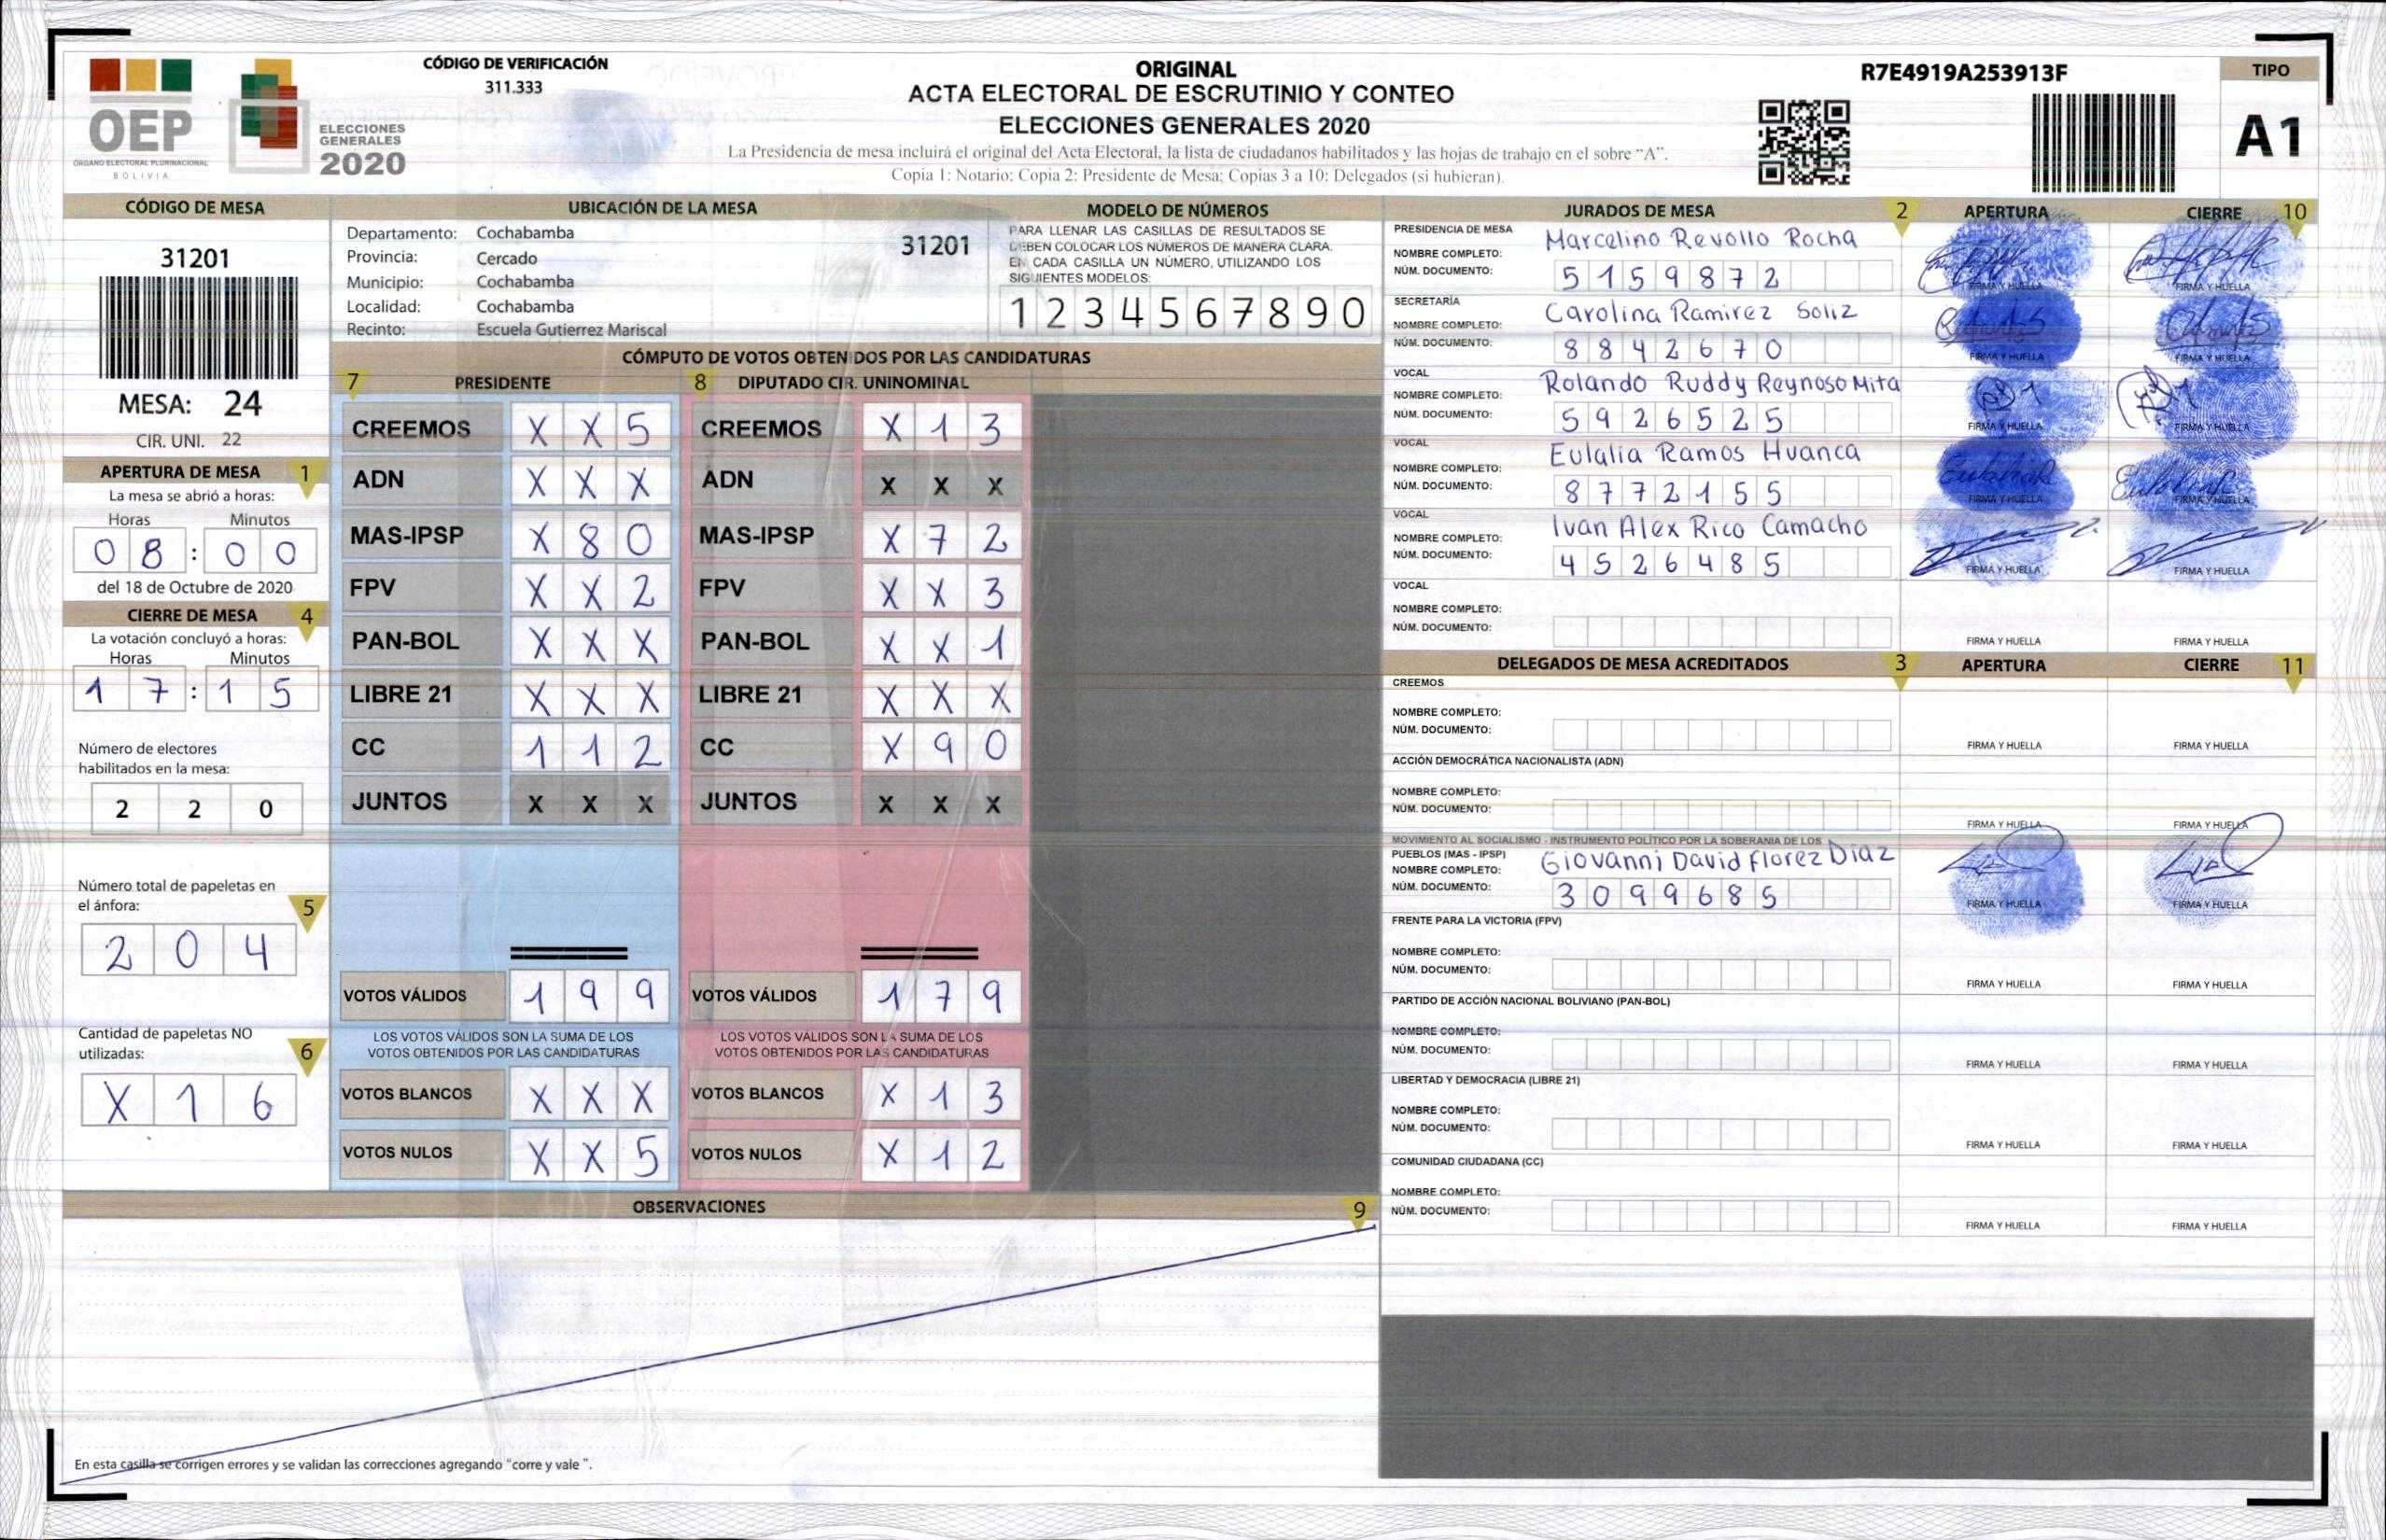 CÓDIGO DE VERIFICACIÓN
311.333
OEP
ÓRGANO ELECTORAL PLURINACIONAL
BOLIVIA
ELECCIONES
GENERALES
2020
ORIGINAL
ACTA ELECTORAL DE ESCRUTINIO Y CONTEO
ELECCIONES GENERALES 2020
La Presidencia de mesa incluirá el original del Acta Electoral, la lista de ciudadanos habilitados y las hojas de trabajo en el sobre "A".
Copia 1: Notario; Copia 2: Presidente de Mesa; Copias 3 a 10: Delegados (si hubieran).
R7E4919A253913F
TIPO
A1
CÓDIGO DE MESA
31201
MESA: 24
CIR. UNI. 22
APERTURA DE MESA 1
La mesa se abrió a horas:
Horas Minutos
0 8 : 0 0
del 18 de Octubre de 2020
CIERRE DE MESA 4
La votación concluyó a horas:
Horas Minutos
1 7 : 1 5
Número de electores
habilitados en la mesa:
2 2 0
Número total de papeletas en
el ánfora:
5
2 0 4
Cantidad de papeletas NO
utilizadas:
6
X 1 6
UBICACIÓN DE LA MESA
Departamento: Cochabamba
31201
Provincia: Cercado
Municipio: Cochabamba
Localidad: Cochabamba
Recinto: Escuela Gutierrez Mariscal
MODELO DE NÚMEROS
PARA LLENAR LAS CASILLAS DE RESULTADOS SE
DEBEN COLOCAR LOS NÚMEROS DE MANERA CLARA.
EN CADA CASILLA UN NÚMERO, UTILIZANDO LOS
SIGUIENTES MODELOS:
1 2 3 4 5 6 7 8 9 0
CÓMPUTO DE VOTOS OBTENIDOS POR LAS CANDIDATURAS
7 PRESIDENTE 8 DIPUTADO CIR. UNINOMINAL
CREEMOS X X 5 CREEMOS X 1 3
ADN X X X ADN X X X
MAS-IPSP X 8 0 MAS-IPSP X 7 2
FPV X X 2 FPV X X 3
PAN-BOL X X X PAN-BOL X X 1
LIBRE 21 X X X LIBRE 21 X X X
CC 1 1 2 CC X 9 0
JUNTOS X X X JUNTOS X X X
VOTOS VÁLIDOS 1 9 9 VOTOS VÁLIDOS 1 7 9
LOS VOTOS VÁLIDOS SON LA SUMA DE LOS LOS VOTOS VÁLIDOS SON LA SUMA DE LOS
VOTOS OBTENIDOS POR LAS CANDIDATURAS VOTOS OBTENIDOS POR LAS CANDIDATURAS
VOTOS BLANCOS X X X VOTOS BLANCOS X 1 3
VOTOS NULOS X X 5 VOTOS NULOS X 1 2
OBSERVACIONES 9
En esta casilla se corrigen errores y se validan las correcciones agregando "corre y vale ".
JURADOS DE MESA 2 APERTURA CIERRE 10
PRESIDENCIA DE MESA
NOMBRE COMPLETO: Marcelino Revollo Rocha
NÚM. DOCUMENTO: 5 1 5 9 8 7 2
FIRMA Y HUELLA FIRMA Y HUELLA
SECRETARÍA
NOMBRE COMPLETO: Carolina Ramirez Soliz
NÚM. DOCUMENTO: 8 8 4 2 6 7 0
FIRMA Y HUELLA FIRMA Y HUELLA
VOCAL
NOMBRE COMPLETO: Rolando Ruddy Reynoso Mita
NÚM. DOCUMENTO: 5 9 2 6 5 2 5
FIRMA Y HUELLA FIRMA Y HUELLA
VOCAL
NOMBRE COMPLETO: Eulalia Ramos Huanca
NÚM. DOCUMENTO: 8 7 7 2 1 5 5
FIRMA Y HUELLA FIRMA Y HUELLA
VOCAL
NOMBRE COMPLETO: Ivan Alex Rico Camacho
NÚM. DOCUMENTO: 4 5 2 6 4 8 5
FIRMA Y HUELLA FIRMA Y HUELLA
VOCAL
NOMBRE COMPLETO:
NÚM. DOCUMENTO:
FIRMA Y HUELLA FIRMA Y HUELLA
DELEGADOS DE MESA ACREDITADOS 3 APERTURA CIERRE 11
CREEMOS
NOMBRE COMPLETO:
NÚM. DOCUMENTO:
FIRMA Y HUELLA FIRMA Y HUELLA
ACCIÓN DEMOCRÁTICA NACIONALISTA (ADN)
NOMBRE COMPLETO:
NÚM. DOCUMENTO:
FIRMA Y HUELLA FIRMA Y HUELLA
MOVIMIENTO AL SOCIALISMO - INSTRUMENTO POLÍTICO POR LA SOBERANIA DE LOS
PUEBLOS (MAS - IPSP)
NOMBRE COMPLETO: Giovanni David Florez Diaz
NÚM. DOCUMENTO: 3 0 9 9 6 8 5
FIRMA Y HUELLA FIRMA Y HUELLA
FRENTE PARA LA VICTORIA (FPV)
NOMBRE COMPLETO:
NÚM. DOCUMENTO:
FIRMA Y HUELLA FIRMA Y HUELLA
PARTIDO DE ACCIÓN NACIONAL BOLIVIANO (PAN-BOL)
NOMBRE COMPLETO:
NÚM. DOCUMENTO:
FIRMA Y HUELLA FIRMA Y HUELLA
LIBERTAD Y DEMOCRACIA (LIBRE 21)
NOMBRE COMPLETO:
NÚM. DOCUMENTO:
FIRMA Y HUELLA FIRMA Y HUELLA
COMUNIDAD CIUDADANA (CC)
NOMBRE COMPLETO:
NÚM. DOCUMENTO:
FIRMA Y HUELLA FIRMA Y HUELLA